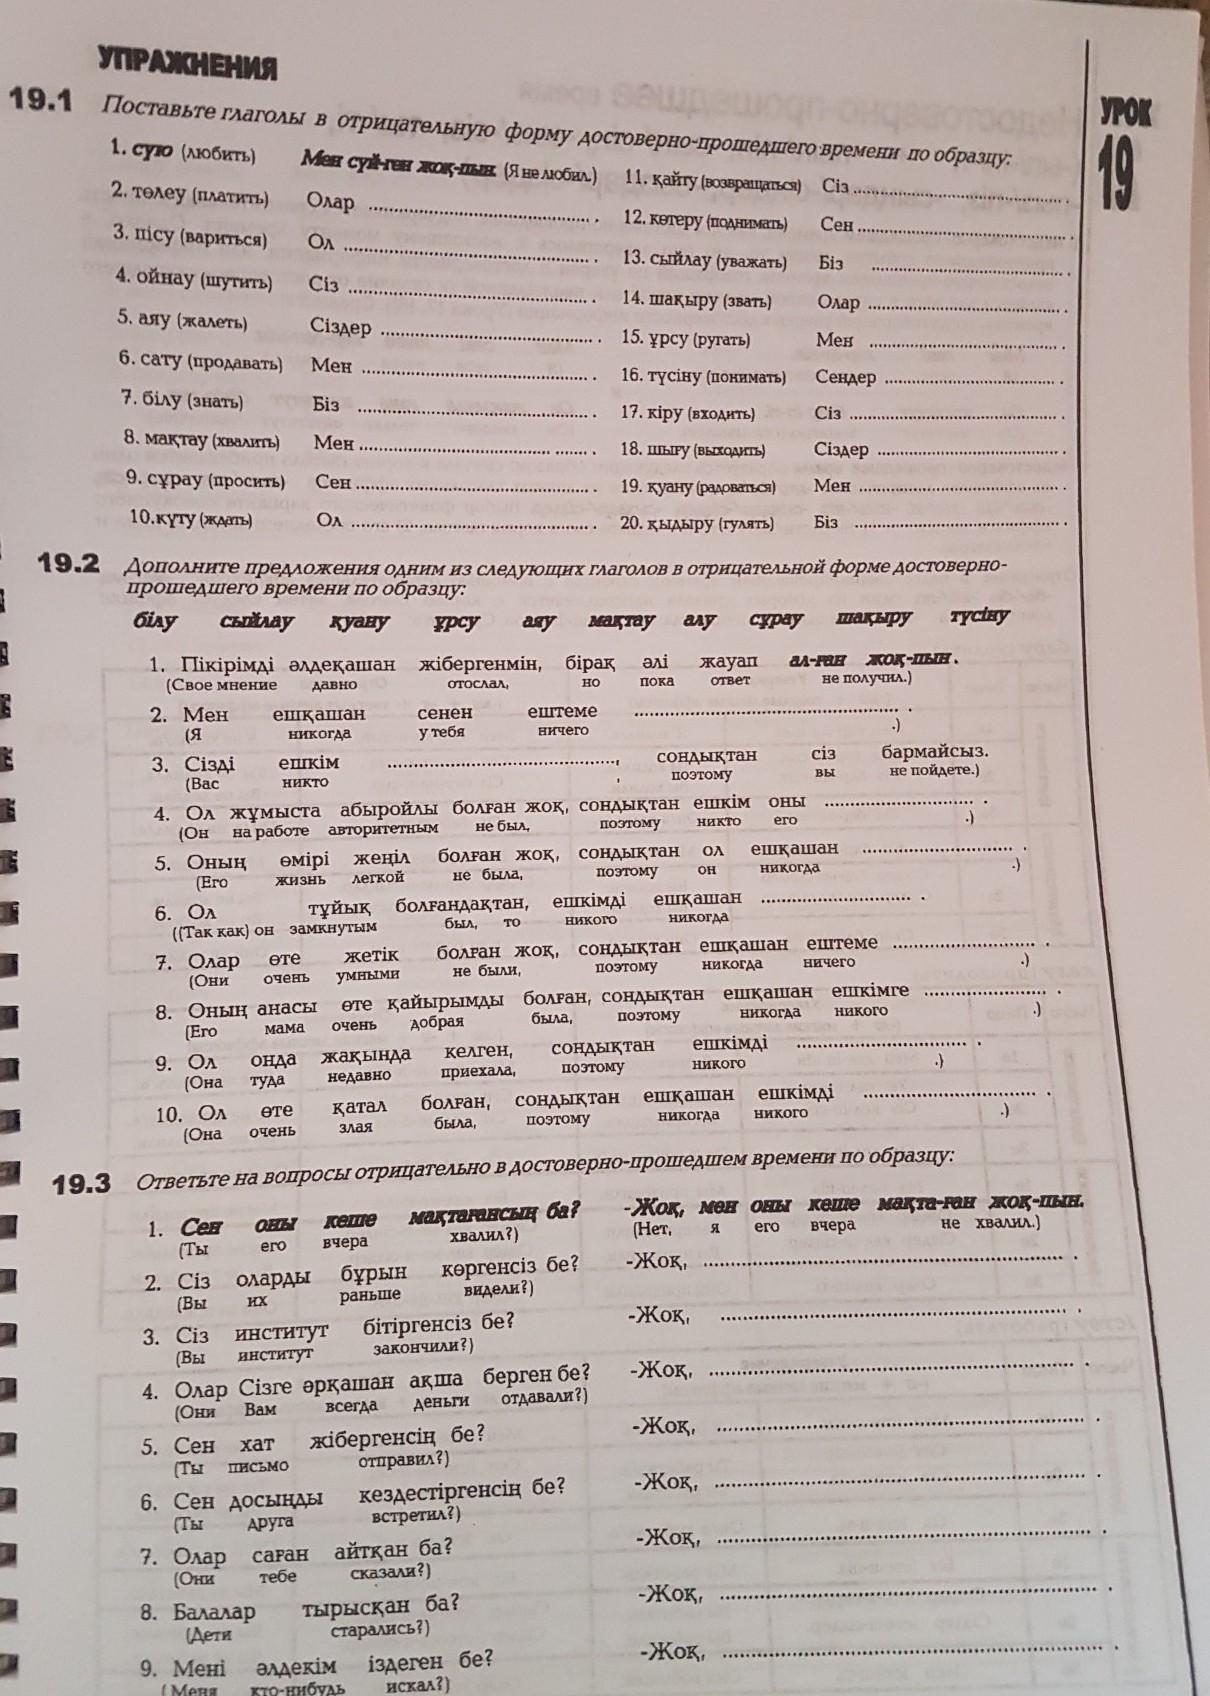 УПРАЖНЕНИЯ
УРОК
19
19.1 Поставьте глаголы в отрицательную форму достоверно-прошедшего времени по образцу:
1. сую (любить) Мен суй-ген жоқ-пын. (Я не любил.)
2. төлеу (платить) Олар ........................ .
3. пісу (вариться) Ол ........................ .
4. ойнау (шутить) Сіз ........................ .
5. аяу (жалеть) Сіздер ........................ .
6. сату (продавать) Мен ........................ .
7. білу (знать) Біз ........................ .
8. мақтау (хвалить) Мен ........................ .
9. сұрау (просить) Сен ........................ .
10.күту (ждать) Ол ........................ .
11. қайту (возвращаться) Сіз ........................ .
12. көтеру (поднимать) Сен ........................ .
13. сыйлау (уважать) Біз ........................ .
14. шақыру (звать) Олар ........................ .
15. ұрсу (ругать) Мен ........................ .
16. түсіну (понимать) Сендер ........................ .
17. кіру (входить) Сіз ........................ .
18. шығу (выходить) Сіздер ........................ .
19. қуану (радоваться) Мен ........................ .
20. қыдыру (гулять) Біз ........................ .
19.2 Дополните предложения одним из следующих глаголов в отрицательной форме достоверно-
прошедшего времени по образцу:
білу сыйлау қуану ұрсу аяу мақтау алу сұрау шақыру түсіну
1. Пікірімді әлдеқашан жібергенмін, бірақ әлі жауап ал-ған жоқ-пын.
(Свое мнение давно отослал, но пока ответ не получил.)
2. Мен ешқашан сенен ештеме ........................ .
(Я никогда у тебя ничего .)
3. Сізді ешкім ........................, сондықтан сіз бармайсыз.
(Вас никто , поэтому вы не пойдете.)
4. Ол жұмыста абыройлы болған жоқ, сондықтан ешкім оны ........................ .
(Он на работе авторитетным не был, поэтому никто его .)
5. Оның өмірі жеңіл болған жоқ, сондықтан ол ешқашан ........................ .
(Его жизнь легкой не была, поэтому он никогда .)
6. Ол тұйық болғандақтан, ешкімді ешқашан ........................ .
((Так как) он замкнутым был, то никого никогда
7. Олар өте жетік болған жоқ, сондықтан ешқашан ештеме ........................ .
(Они очень умными не были, поэтому никогда ничего .)
8. Оның анасы өте қайырымды болған, сондықтан ешқашан ешкімге ........................ .
(Его мама очень добрая была, поэтому никогда никого .)
9. Ол онда жақында келген, сондықтан ешкімді ........................ .
(Она туда недавно приехала, поэтому никого .)
10. Ол өте қатал болған, сондықтан ешқашан ешкімді ........................ .
(Она очень злая была, поэтому никогда никого .)
19.3 Ответьте на вопросы отрицательно в достоверно-прошедшем времени по образцу:
1. Сен оны кеше мақтағансың ба? -Жоқ, мен оны кеше мақта-ған жоқ-пын.
(Ты его вчера хвалил?) (Нет, я его вчера не хвалил.)
2. Сіз оларды бұрын көргенсіз бе? -Жоқ, ........................ .
(Вы их раньше видели?)
3. Сіз институт бітіргенсіз бе? -Жоқ, ........................ .
(Вы институт закончили?)
4. Олар Сізге әрқашан ақша берген бе? -Жоқ, ........................ .
(Они Вам всегда деньги отдавали?)
5. Сен хат жібергенсің бе? -Жоқ, ........................ .
(Ты письмо отправил?)
6. Сен досыңды кездестіргенсің бе? -Жоқ, ........................ .
(Ты друга встретил?)
7. Олар саған айтқан ба? -Жоқ, ........................ .
(Они тебе сказали?)
8. Балалар тырысқан ба? -Жоқ, ........................ .
(Дети старались?)
9. Мені әлдекім іздеген бе? -Жоқ, ........................ .
(Меня кто-нибудь искал?)